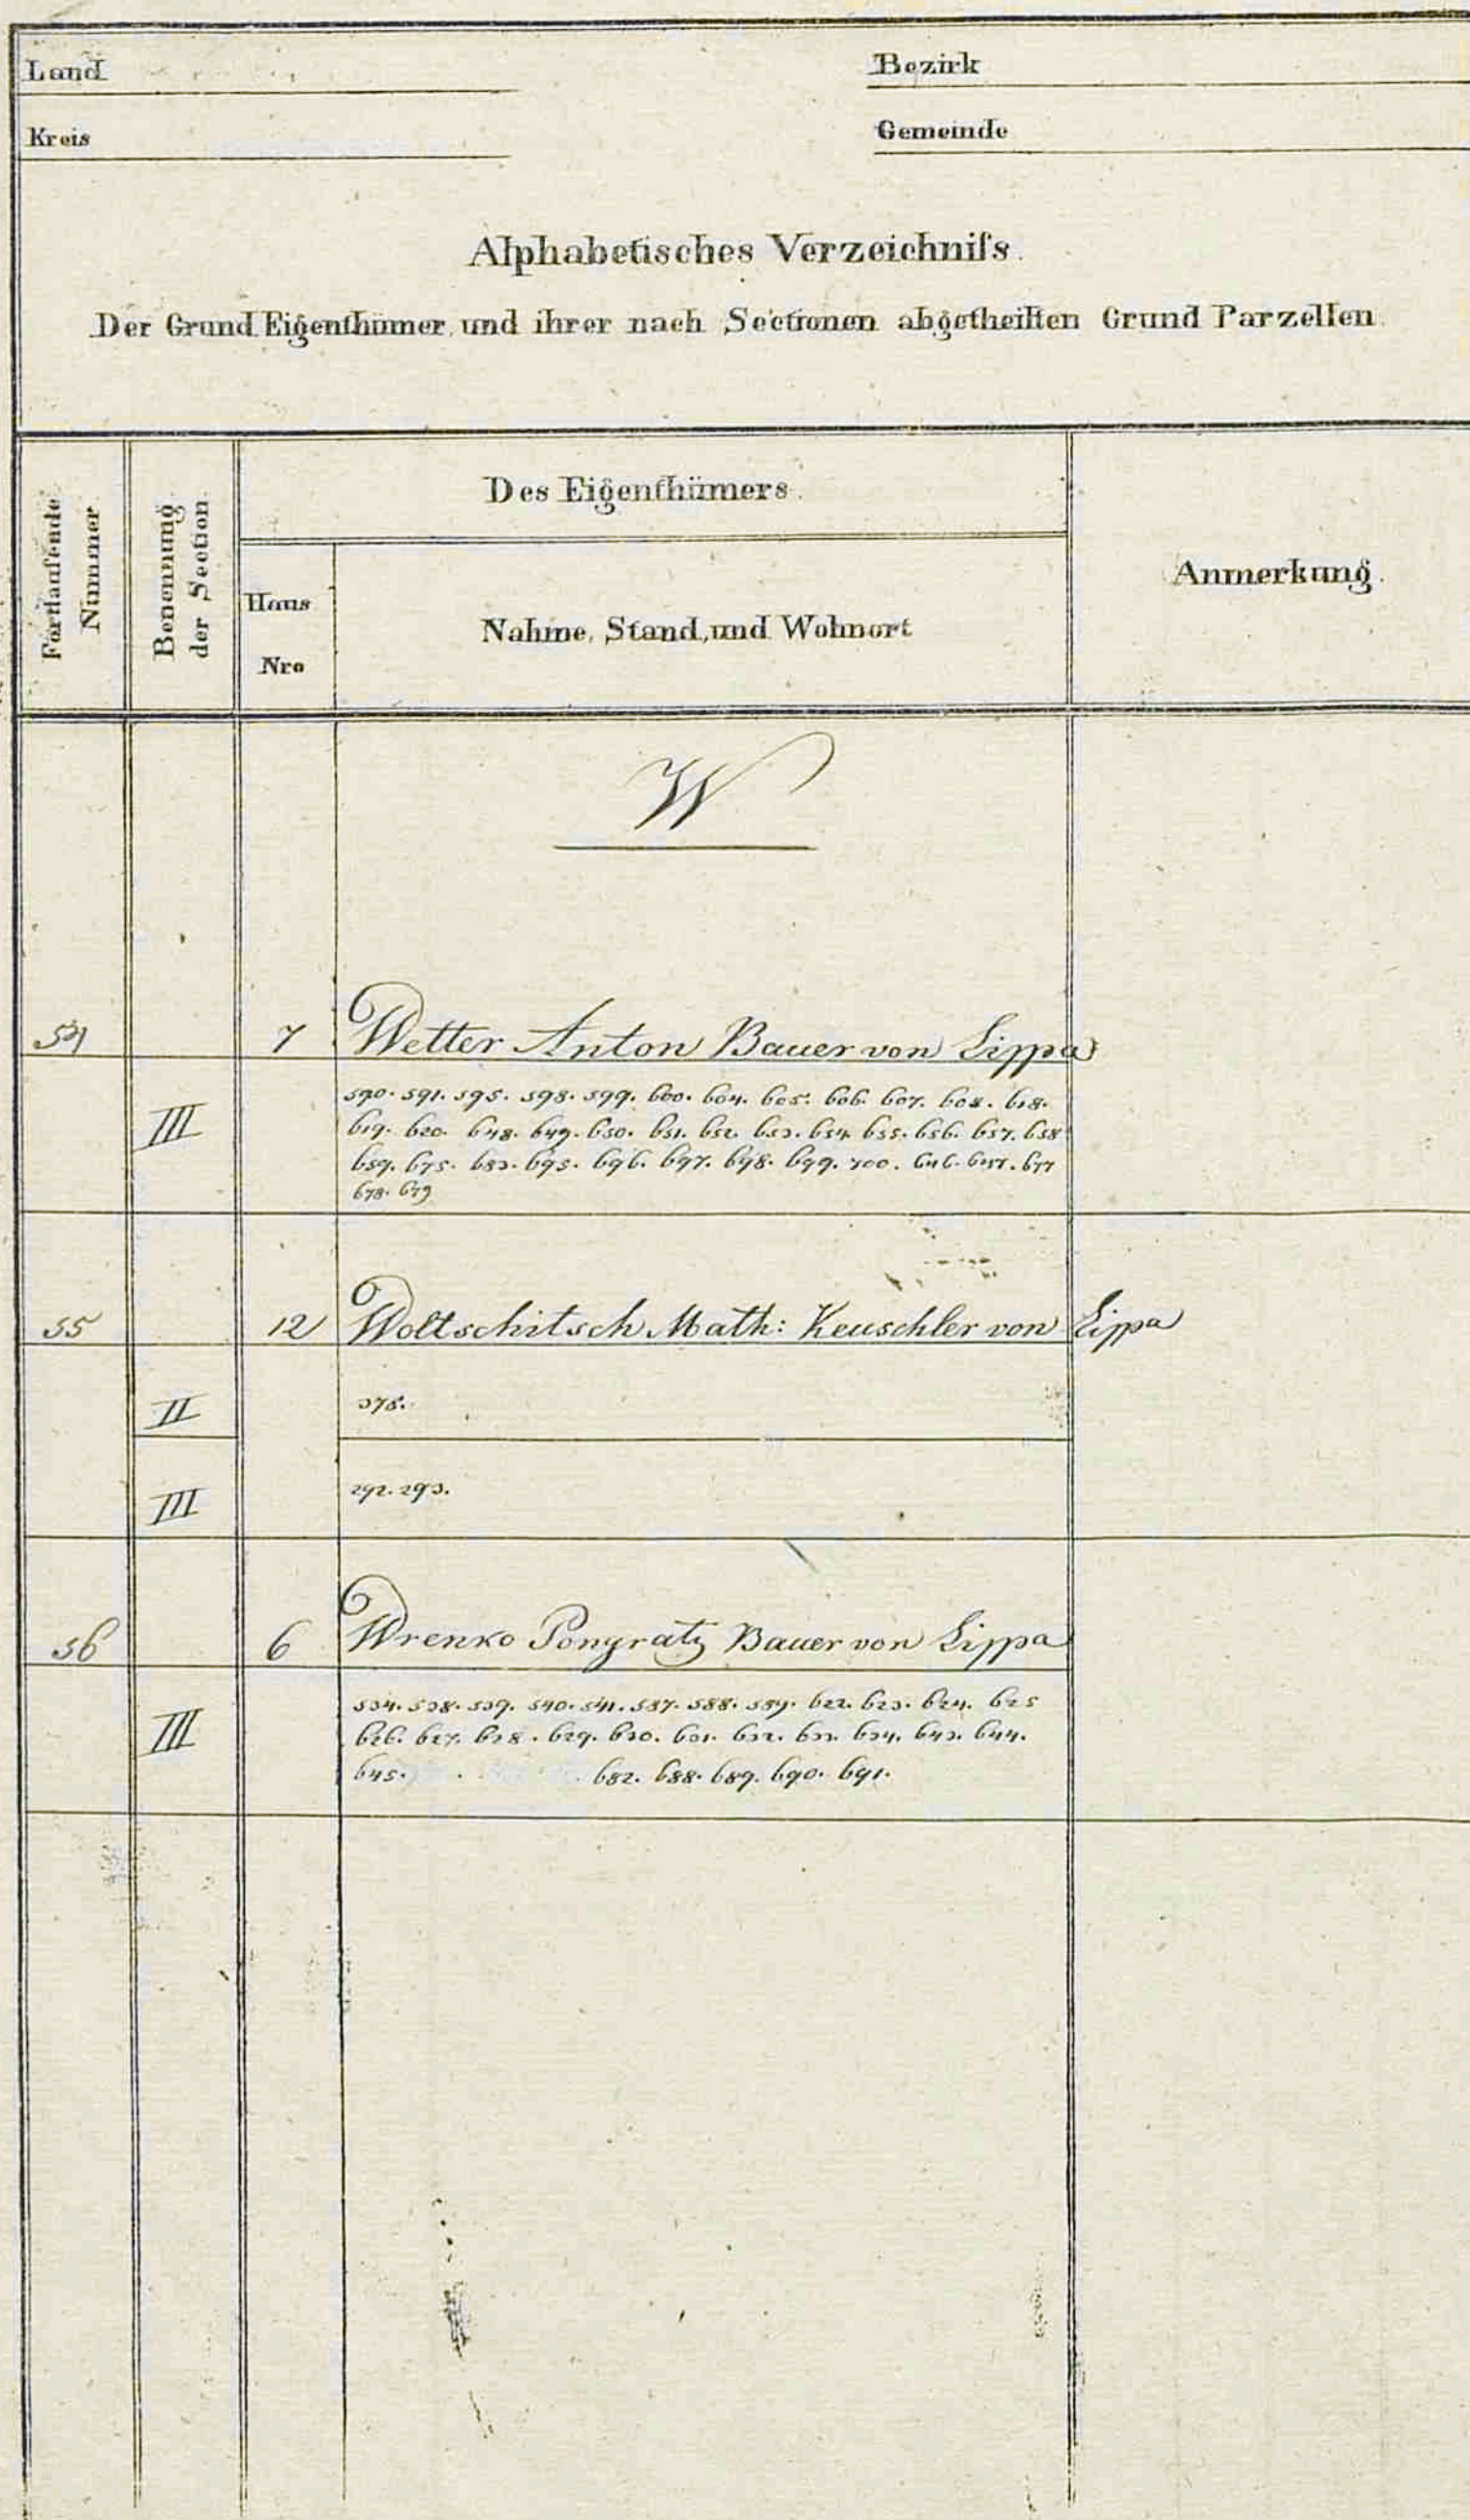 Land
Bezirk
Kreis
Gemeinde
Alphabetisches Verzeichniſs.
Der Grund Eigenthümer, und ihrer nach Sectionen abgetheilten Grund Parzellen
Fortlaufende Nummer
Benennung der Section
Des Eigenthümers.
Haus Nro
Nahme, Stand, und Wohnort
Anmerkung.
W
54 7 Wetter Anton Bauer von Lippa
III 590. 591. 595. 598. 599. 600. 604. 605. 606. 607. 608. 618.
619. 620. 648. 649. 650. 651. 652. 653. 654. 655. 656. 657. 658
659. 675. 683. 695. 696. 697. 698. 699. 700. 646. 677
678. 679
55 12 Woltschitsch Math: Keuschler von Lippa
II 375.
III 292. 293.
56 6 Wrenko Pongratz Bauer von Lippa
III 534. 538. 539. 540. 541. 587. 588. 589. 622. 623. 624. 625
626. 627. 628. 629. 630. 631. 632. 633. 634. 643. 644.
645. 682. 688. 689. 690. 691.